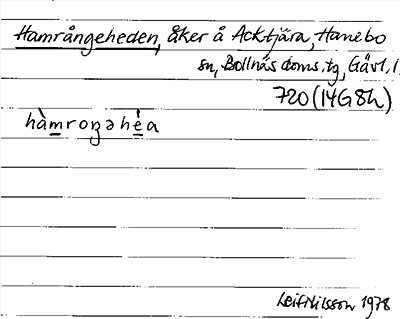 Hamrångeheden, åker å Acktjära, Hanebo
sn, Bollnäs doms. tg, Gävl. l
720 (14G8h)
hàmroŋəhéa
Leif Nilsson 1978